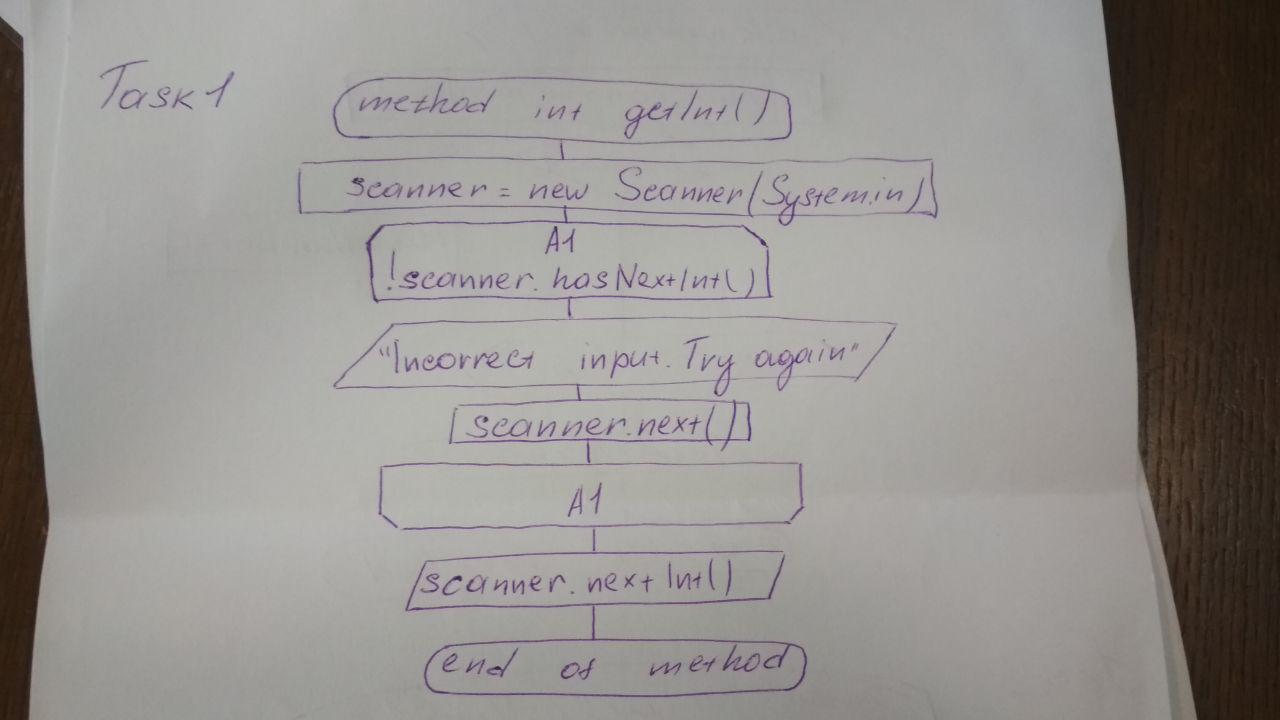 Task 1
method int getInt()
scanner = new Scanner(System.in)
A1
!scanner.hasNextInt()
"Incorrect input. Try again"
scanner.next()
A1
scanner.nextInt()
end of method